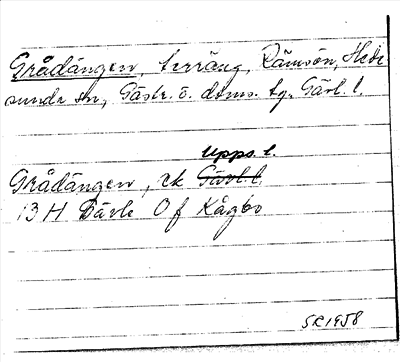 Grådängen, terräng, Rämsön, Hede
sunda sn, Gästr. ö. doms. tg. Gävl. l.
Upps. l.
Grådängen, ek Gävl. l.
13 H Gävle 0 f Kågbo
SR 1958